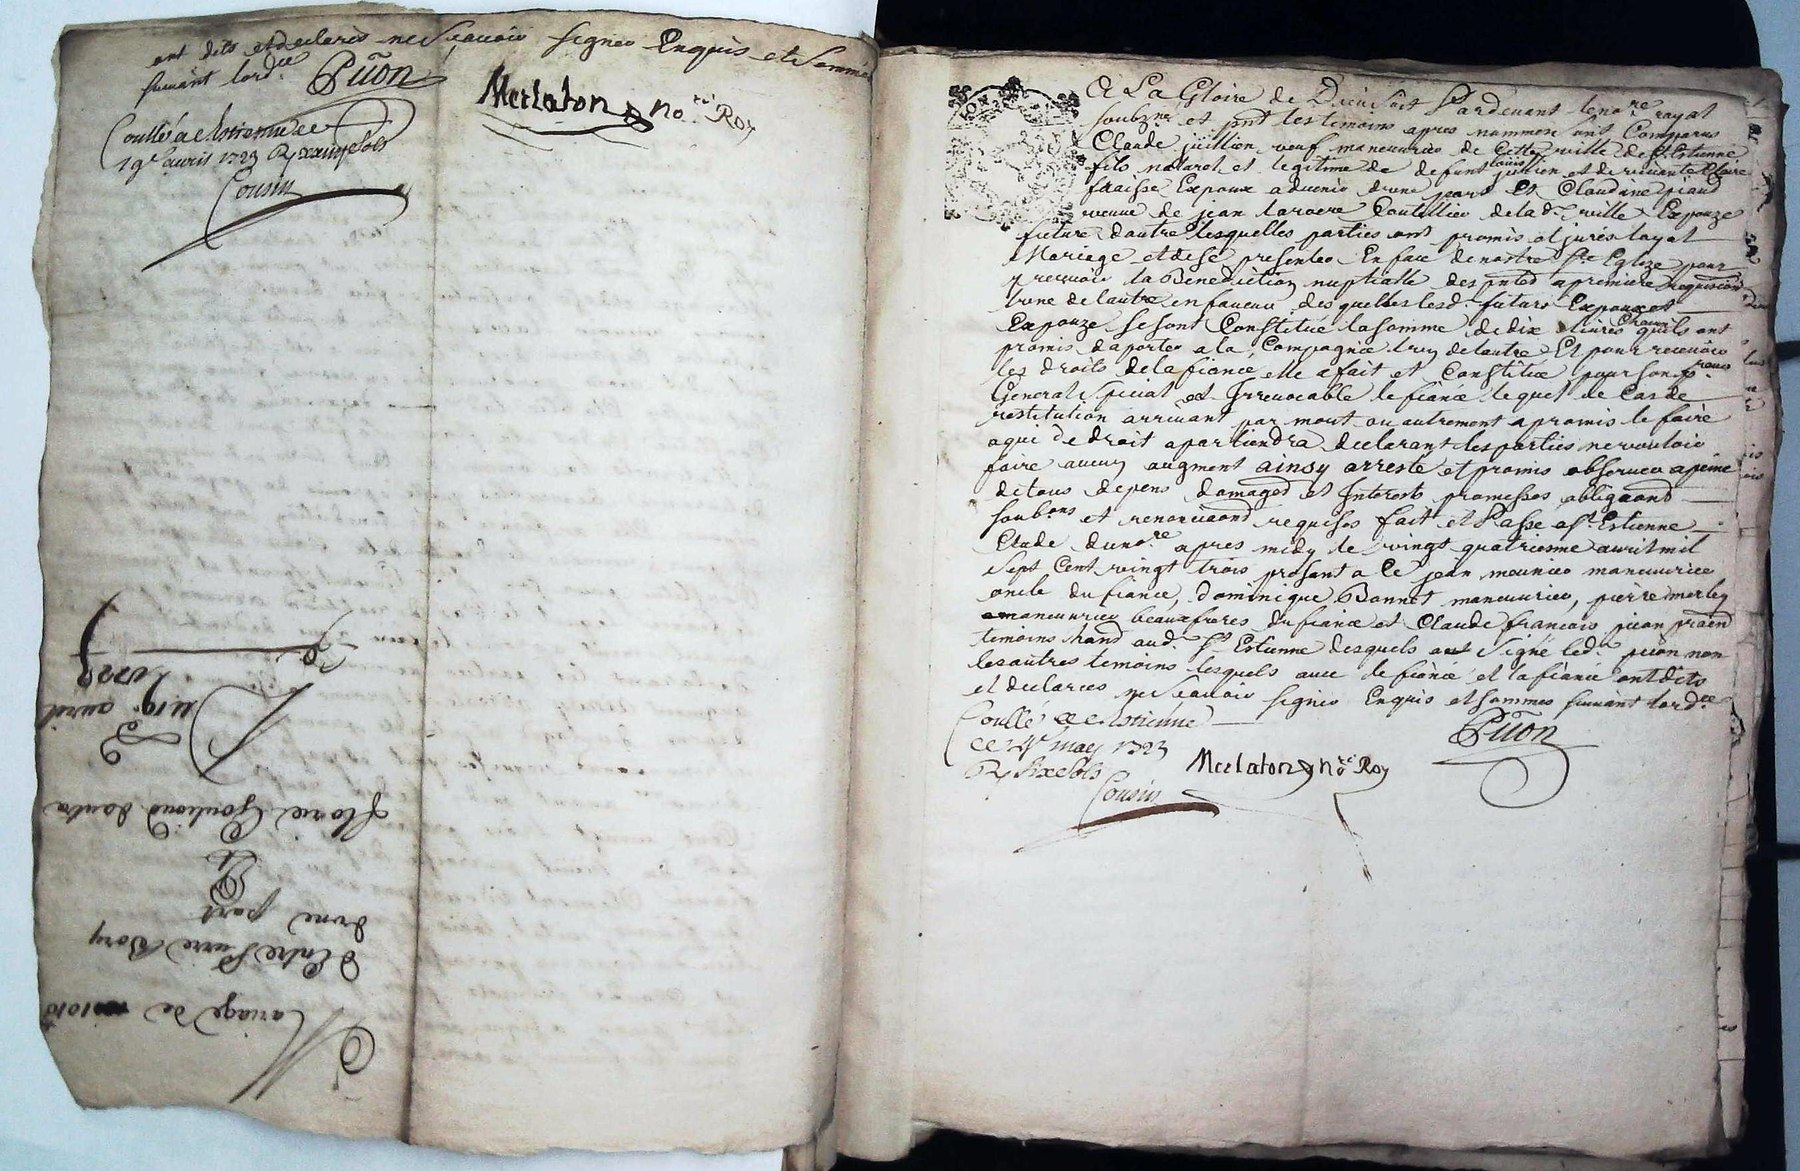 ont dits et declarés ne scavoir signer Enquis et sommés
suivant lord.ce Piion
Merlaton no.re Roy
Coullé a St Estienne ce
19e avril 1723 R
Cousin
Mariage de
Entre Pierre Bory
dune part
Et
Florie dautre
Du 19e avril
1723
A La Gloire de Dieu Soit Pardevant le no.re royal
soubz.né et pnt les temoins apres nommere ont Comparus
Claude jullien veuf maneuvrier de Cette ville de St Estienne
fils naturel et legitime de defunt Louis jullien et de vivante Claire
fraisse Expoux advenir dune part Et Claudine piaud
veuve de jean larvere Coutellier de lad. ville Expouze
future dautre lesquelles parties ont promis et jurés layal
Mariage et de se presenter En face de nostre Ste Eglize pour
y recevoir la Benediction nuptialle des pntes a premiere requisition
lune de lautre en faveur des quelles lesd. futurs Expoux et
Expouze se sont Constitué la somme de dix livres Chacun quils ont
promis daporter a la Compagnie lun de lautre Et pour recevoir
les droits de la fiancé elle a fait et Constitué pour son procu.
General Special et Irrevocable le fiancé lequel de Cas de
restitution arrivant par mort ou autrement a promis le faire
a qui de droit apartiendra declarant les parties ne vouloir
faire aucun augment ainsy arresté et promis observer a peine
de tous depens damages et Interests promesses obligaons
soub.ons et renonciaons requises fait et Passé a St Estienne
Etude du no.re apres midy le vingt quatriesme avril mil
sept Cent vingt trois presant a Ce jean meunier maneuvrier
oncle du fiancé, dominique Bonnet maneuvrier, pierre merley
maneuvrier beauxfreres du fiancé et Claude francois piion
temoins aud. St Estienne desquels a signé led. piion non
les autres temoins lesquels avec le fiancé et la fiancé ont dits
et declarés ne scavoir signer Enquis et sommes suivant lord.ce
Coullé a St Estienne
ce 4e may 1723
R six sols
Cousin
Merlaton no.re Roy
Piion